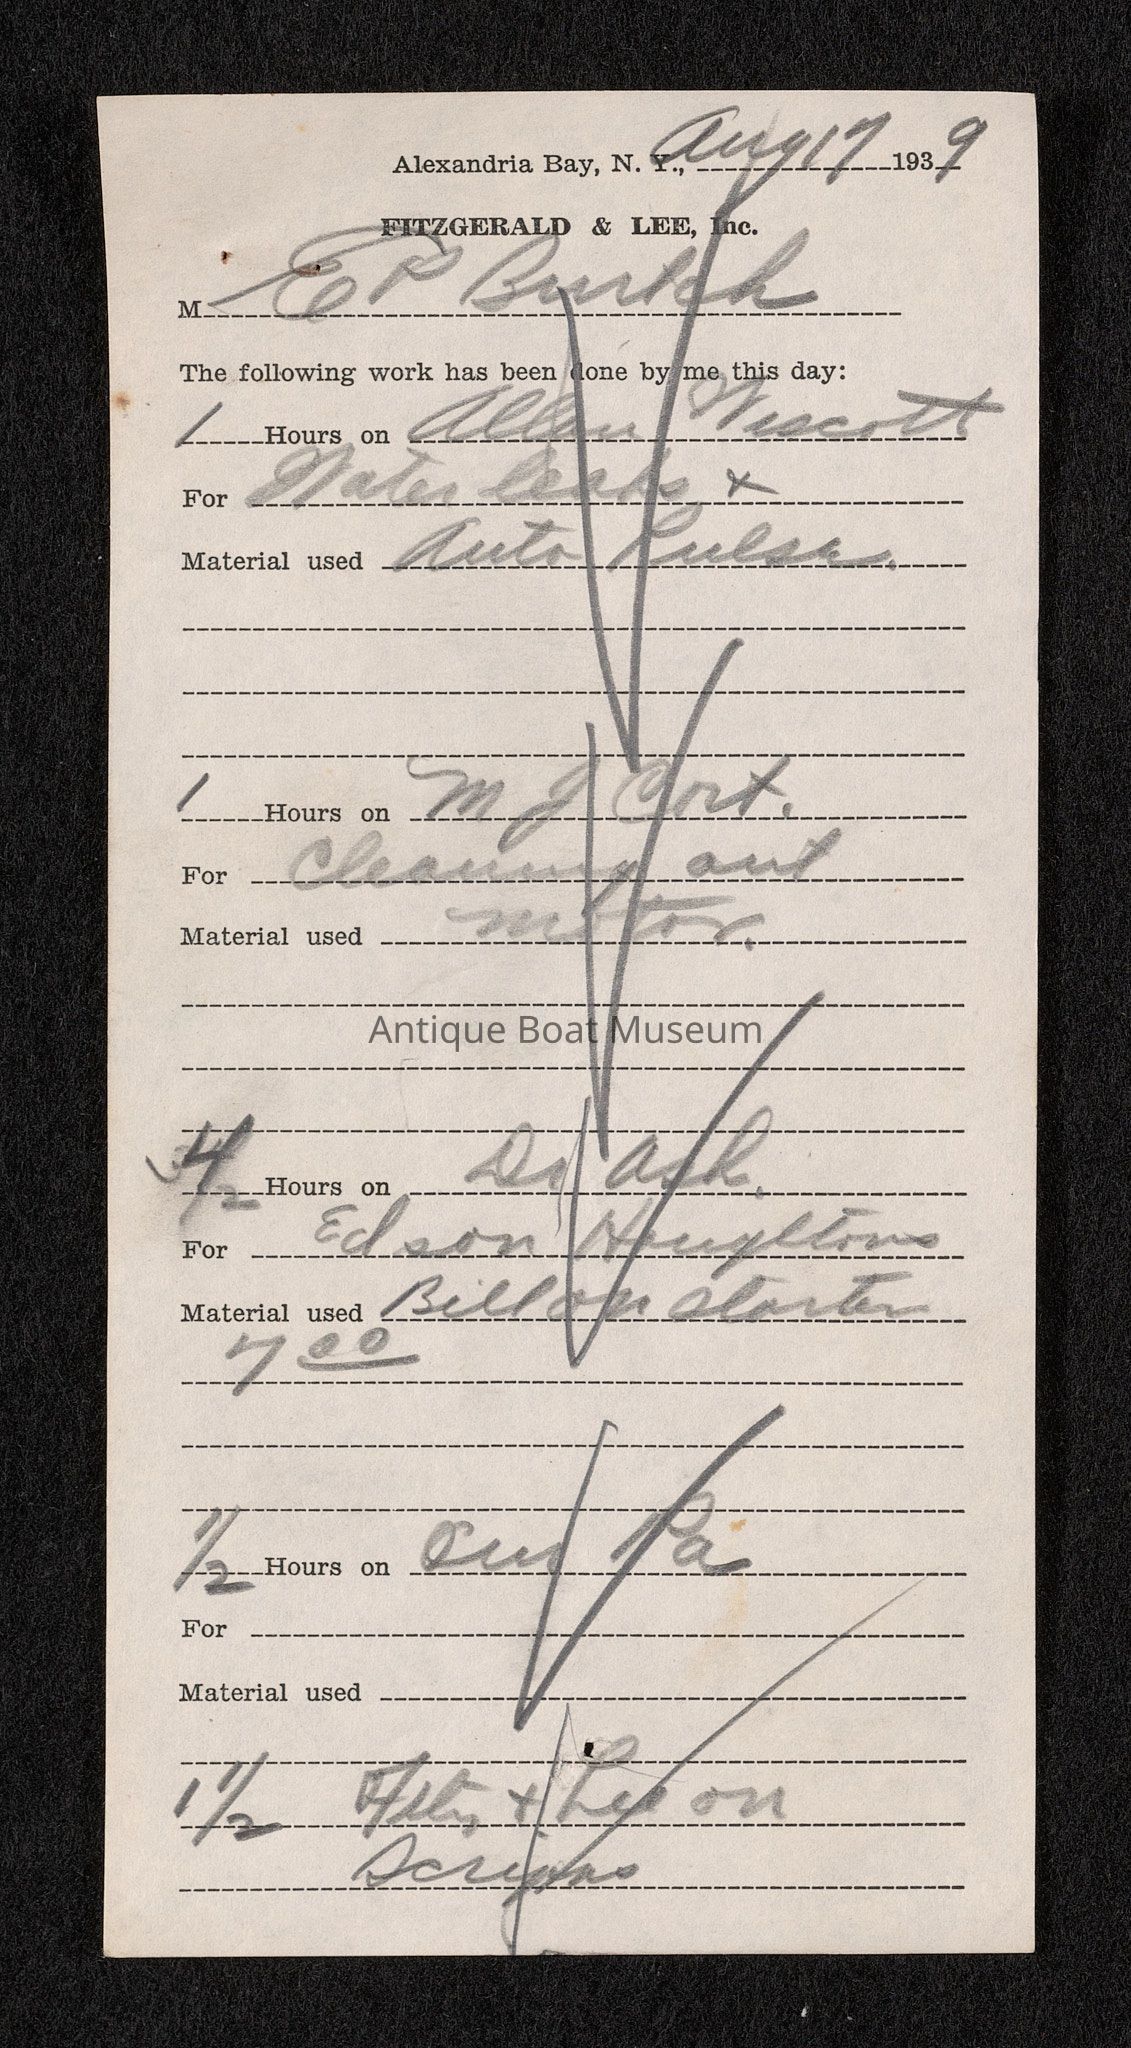 Alexandria Bay, N. Y., Aug 17 1939
FITZGERALD & LEE, Inc.
M E P Burtch
The following work has been done by me this day:
1 Hours on Allen Wescott
For Water leaks +
Material used Auto Pulse.
1 Hours on M J Cort.
For Cleaning out
Material used motor.
Antique Boat Museum
Hours on Dr Ash.
For Edson Houghtons
Material used Bill on starter
7 00
1/2 Hours on Pa
For
Material used
1 1/2 Fitz + Lee on
Scripps